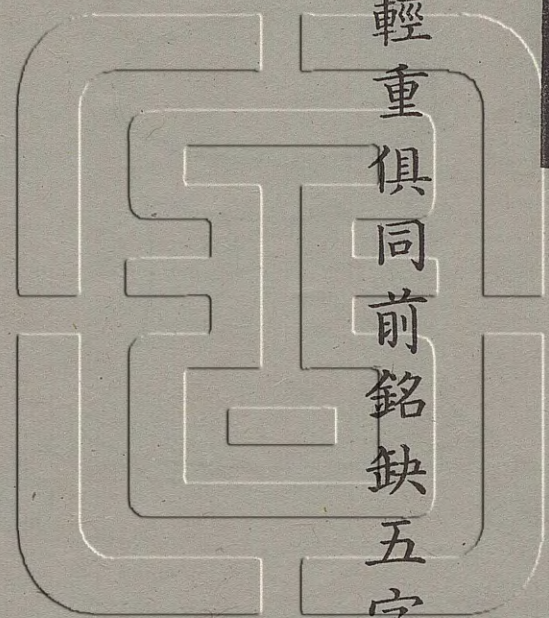 輕重俱同前銘缺五字